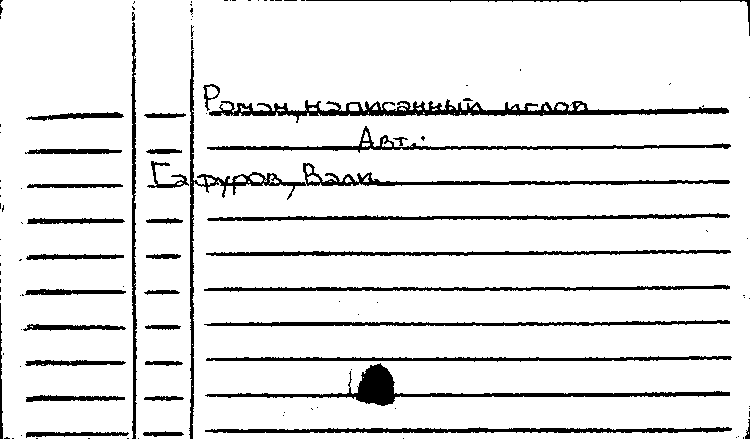 Роман, написанный иглой
Авт.:
Гафуров, Вали.